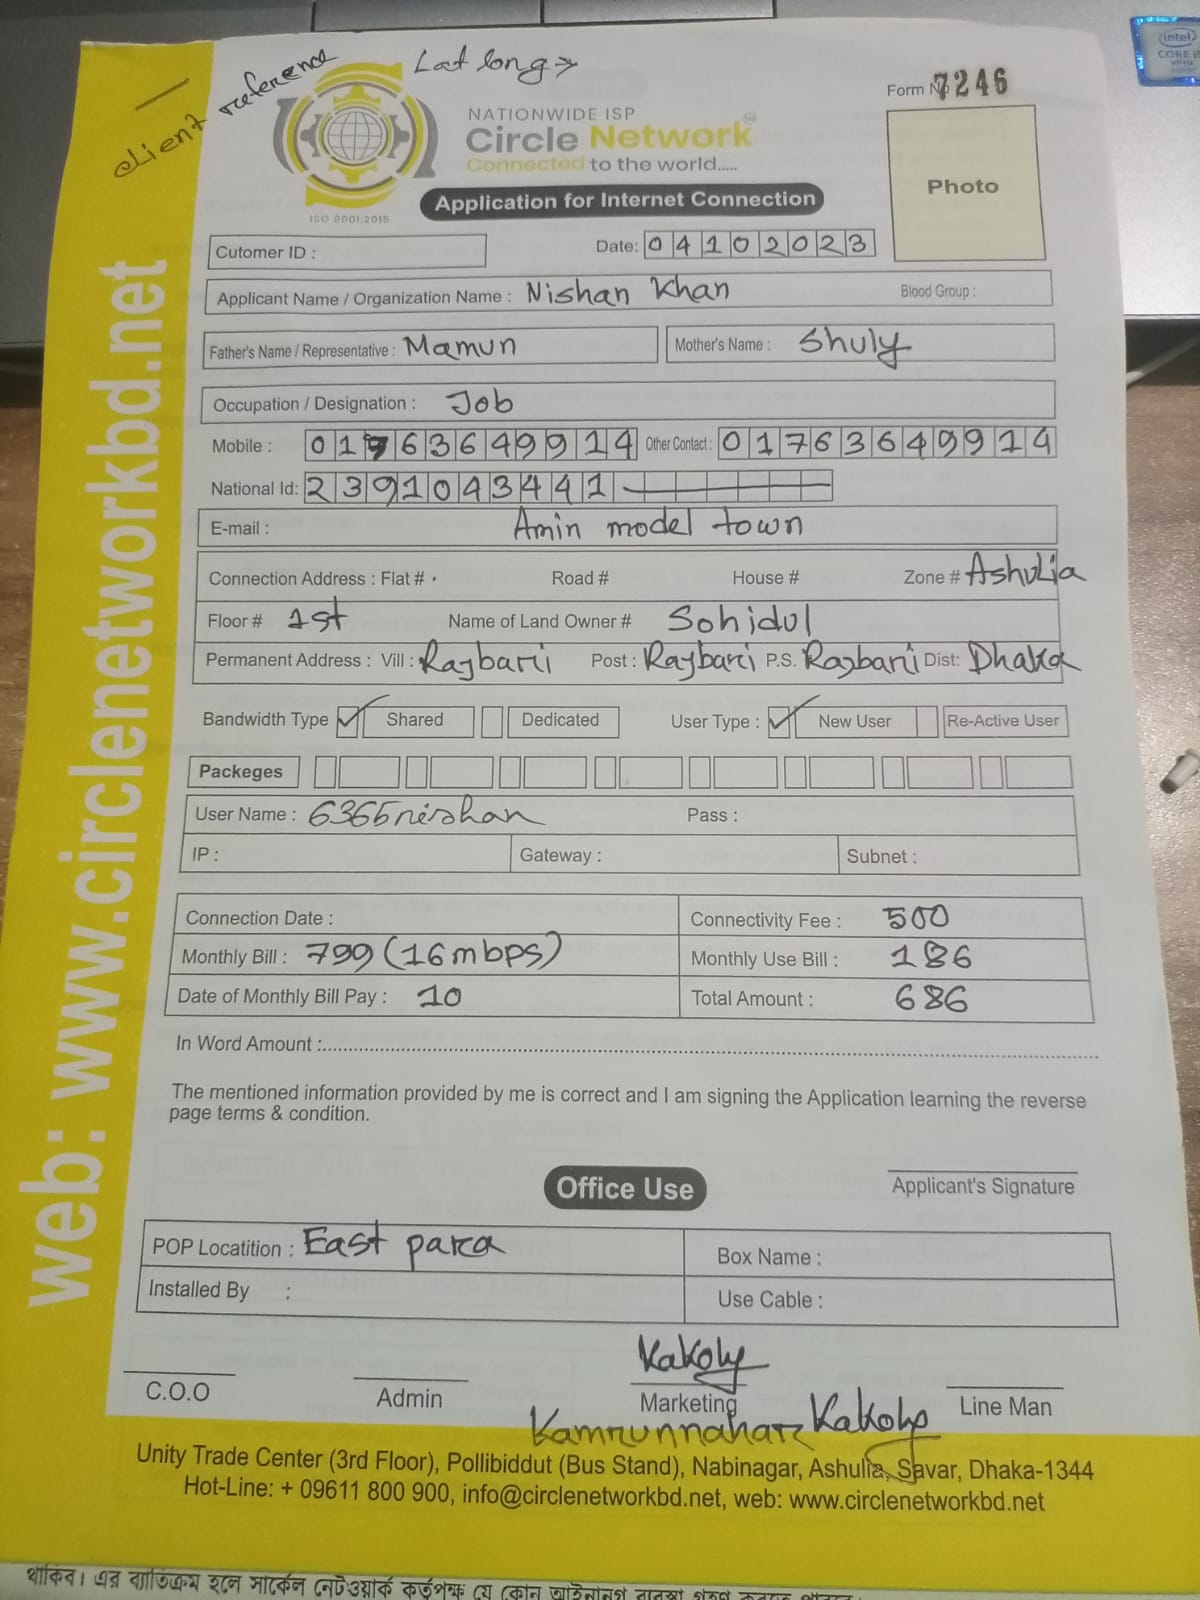 client reference
Lat long →
Form No 7246
NATIONWIDE ISP
Circle Network
Connected to the world.....
ISO 9001:2015
Application for Internet Connection
Photo
Cutomer ID :
Date: 04102023
Applicant Name / Organization Name : Nishan Khan Blood Group :
Father's Name / Representative : Mamun Mother's Name : Shuly
Occupation / Designation : Job
Mobile : 01763649914 Other Contact : 01763649914
National Id: 2391043441
E-mail : Amin model town
Connection Address : Flat # Road # House # Zone # Ashulia
Floor # 1st Name of Land Owner # Sohidul
Permanent Address : Vill : Rajbari Post : Rajbari P.S. Rajbari Dist: Dhaka
Bandwidth Type ✓ Shared Dedicated User Type : ✓ New User Re-Active User
Packeges
User Name : 6365nishan Pass :
IP : Gateway : Subnet :
Connection Date : Connectivity Fee : 500
Monthly Bill : 799 (16 mbps) Monthly Use Bill : 186
Date of Monthly Bill Pay : 10 Total Amount : 686
In Word Amount :
The mentioned information provided by me is correct and I am signing the Application learning the reverse
page terms & condition.
Office Use
Applicant's Signature
POP Locatition : East para Box Name :
Installed By : Use Cable :
Kakoly
C.O.O Admin Marketing Line Man
Kamrunnahar Kakoly
Unity Trade Center (3rd Floor), Pollibiddut (Bus Stand), Nabinagar, Ashulia, Savar, Dhaka-1344
Hot-Line: + 09611 800 900, info@circlenetworkbd.net, web: www.circlenetworkbd.net
web: www.circlenetworkbd.net
থাকিব। এর ব্যতিক্রম হলে সার্কেল নেটওয়ার্ক কর্তৃপক্ষ যে কোন
intel
CORE i5
vPro